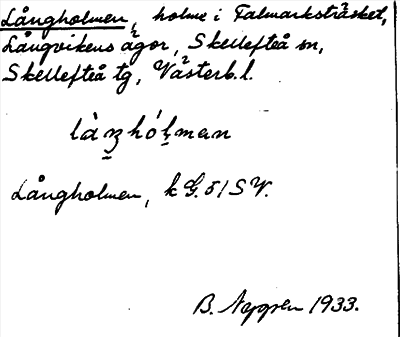 Långholmen, holme i Falmarksträsket,
Långvikens ägor, Skellefteå sn,
Skellefteå tg, Västerb. l.
làŋhól̥man
Långholmen, k G. 51 SV.
B. Nygren 1933.